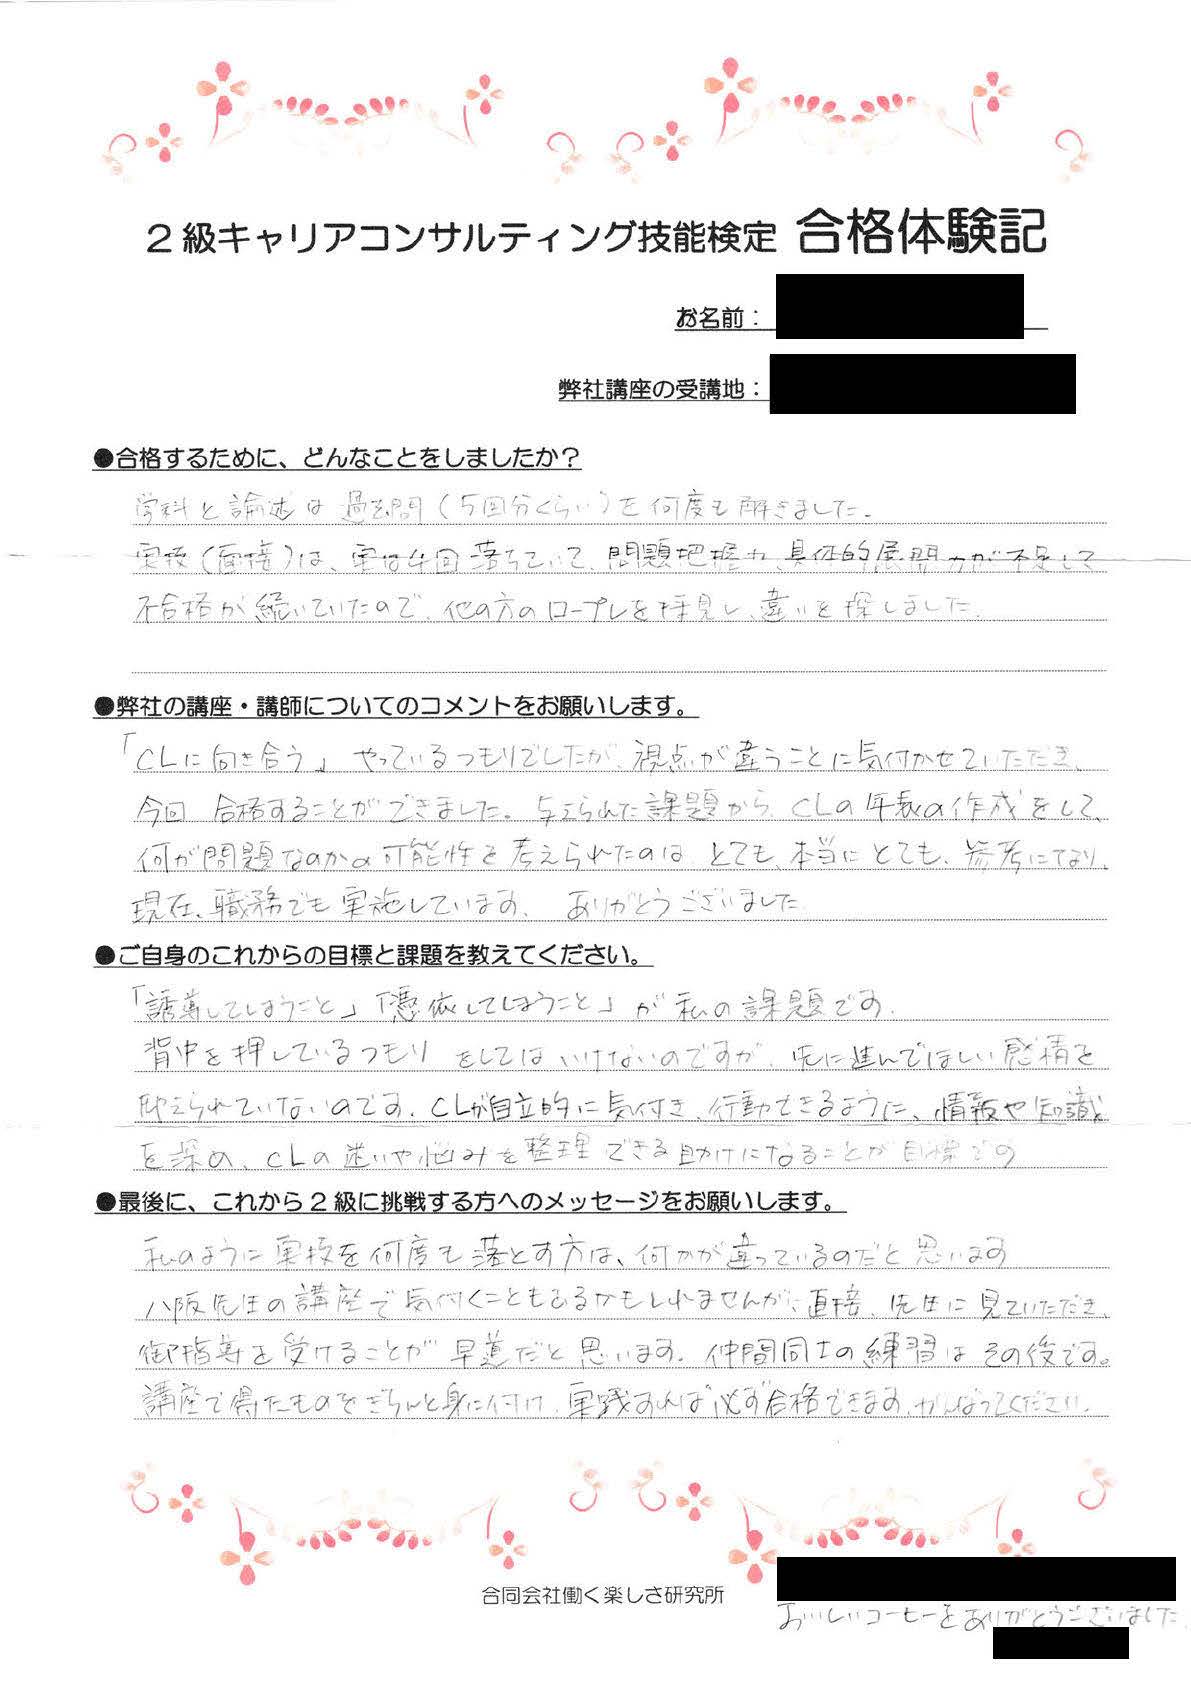 ２級キャリアコンサルティング技能検定 合格体験記
お名前：
弊社講座の受講地：
●合格するために、どんなことをしましたか？
学科と論述は過去問（5回分くらい）を何度も解きました。
実技（面接）は、実は4回落ちていて、問題把握力、具体的展開力が不足して
不合格が続いていたので、他の方のロープレを拝見し、違いを探しました。
●弊社の講座・講師についてのコメントをお願いします。
「CLに向き合う」やっているつもりでしたが、視点が違うことに気付かせていただき、
今回 合格することができました。与えられた課題から、CLの年表の作成をして、
何が問題なのかの可能性を考えられたのは、とても、本当にとても、参考になり、
現在、職務でも実施しています。 ありがとうございました。
●ご自身のこれからの目標と課題を教えてください。
「誘導してしまうこと」「憑依してしまうこと」が私の課題です。
背中を押しているつもりをしてはいけないのですが、先に進んでほしい感情を
抑えられていないのです。CLが自立的に気付き、行動できるように、情報や知識
を深め、CLの迷いや悩みを整理できる助けになることが目標です
●最後に、これから２級に挑戦する方へのメッセージをお願いします。
私のように実技を何度も落とす方は、何かが違っているのだと思います
八阪先生の講座で気付くこともあるかもしれませんが、直接、先生に見ていただき、
御指導を受けることが早道だと思います。仲間同士の練習はその後です。
講座で得たものをきちんと身に付け、実践すれば必ず合格できます。がんばってください。
合同会社働く楽しさ研究所
おいしいコーヒーをありがとうございました。